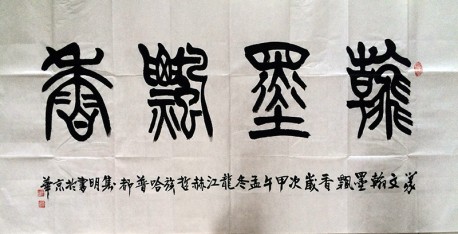 翰墨飄香
文翰墨飄香歲次甲午孟冬龍江赫哲族哈普都隽明書於京華